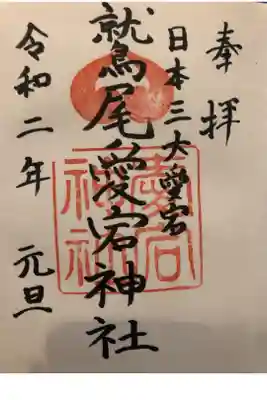 奉拝
日本三大愛宕
鷲尾愛宕神社
愛宕
神社
令和二年 元旦